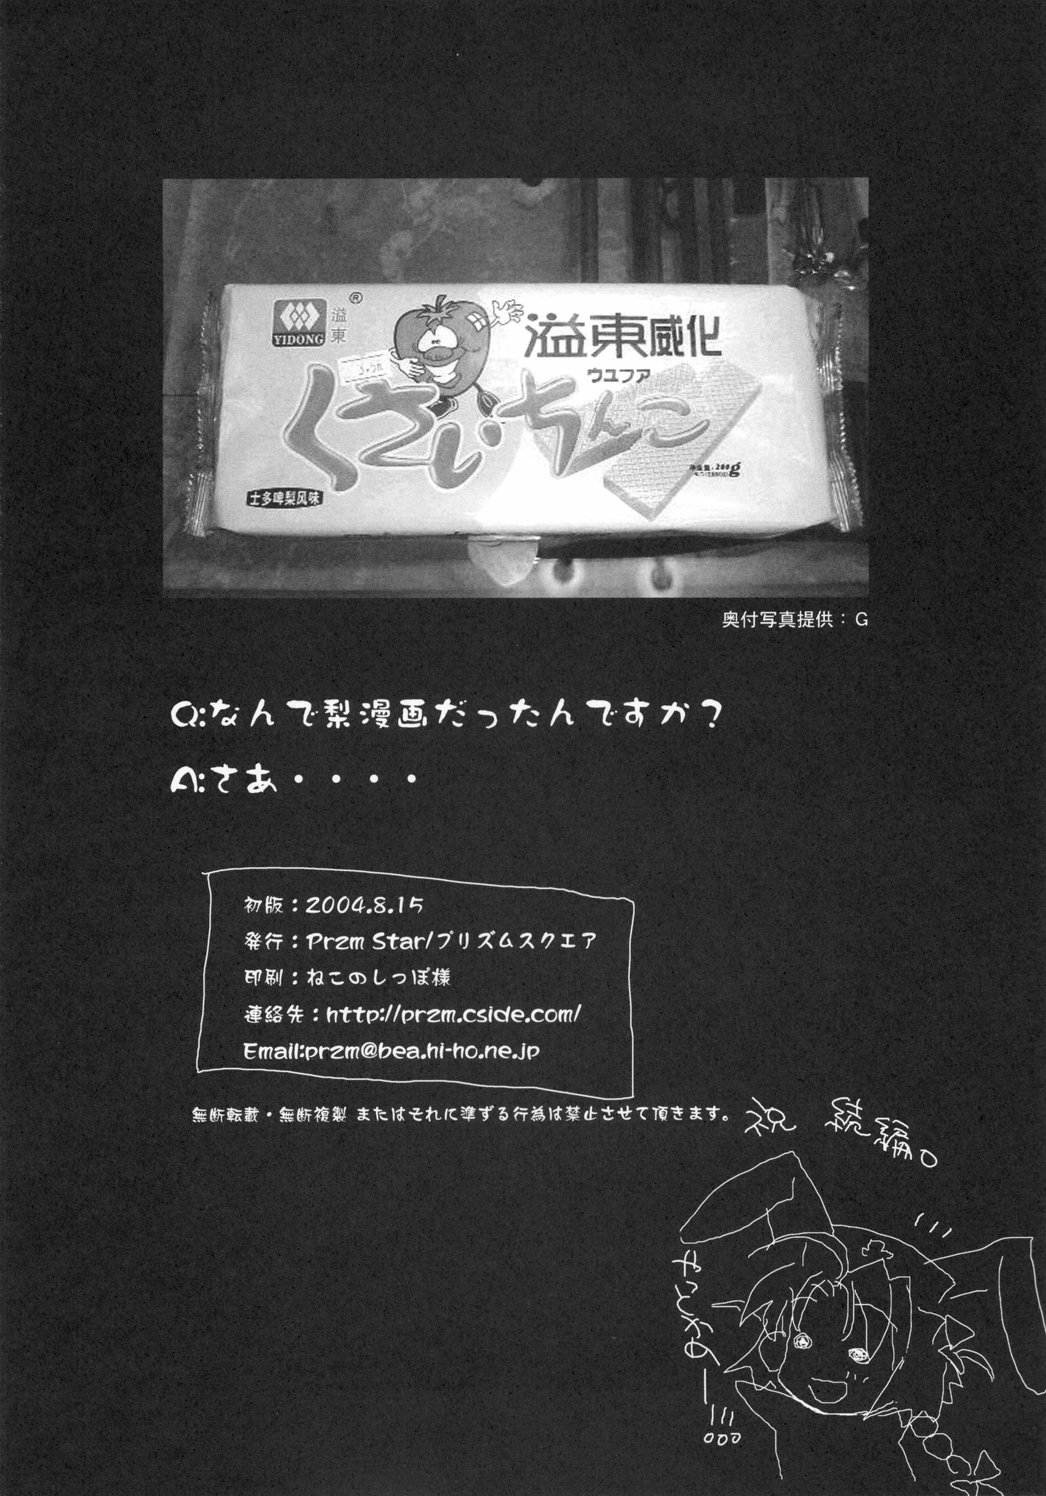 YIDONG
®
溢東
溢東威化
ウユフア
くさいちんこ
士多啤梨风味
净含量:200g
奥付写真提供：G
Q:なんで梨漫画だったんですか？
A:さあ・・・・
初版：2004.8.15
発行：Przm Star/プリズムスクエア
印刷：ねこのしっぽ様
連絡先：http://przm.cside.com/
Email:przm@bea.hi-ho.ne.jp
無断転載・無断複製 またはそれに準ずる行為は禁止させて頂きます。
祝 続編。
やっとかのー!!!